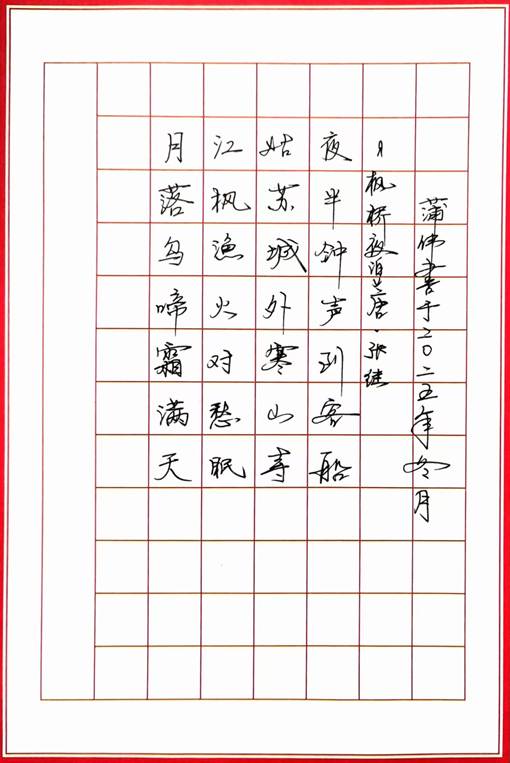 月落乌啼霜满天
江枫渔火对愁眠
姑苏城外寒山寺
夜半钟声到客船
枫桥夜泊唐·张继
蒲伟书于二〇二五年冬月